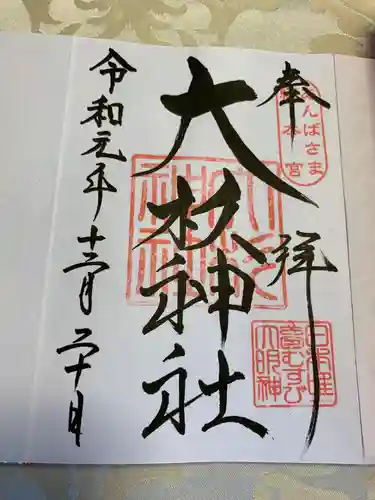 奉拝
あんばさま
本宮
大杉神社
大杉神社
夢むすび
大明神
令和元年十二月二十日